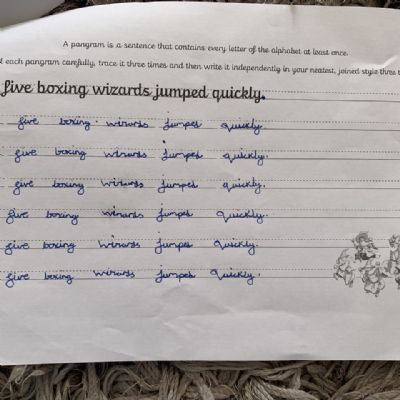 A pangram is a sentence that contains every letter of the alphabet at least once.
each pangram carefully, trace it three times and then write it independently in your neatest, joined style three
five boxing wizards jumped quickly.
five boxing. wizards jumped quickly.
five boxing wizards jumped quickly.
five boxing wizards jumped quickly.
five boxing wizards jumped quickly.
five boxing wizards jumped quickly.
five boxing wizards jumped quickly.